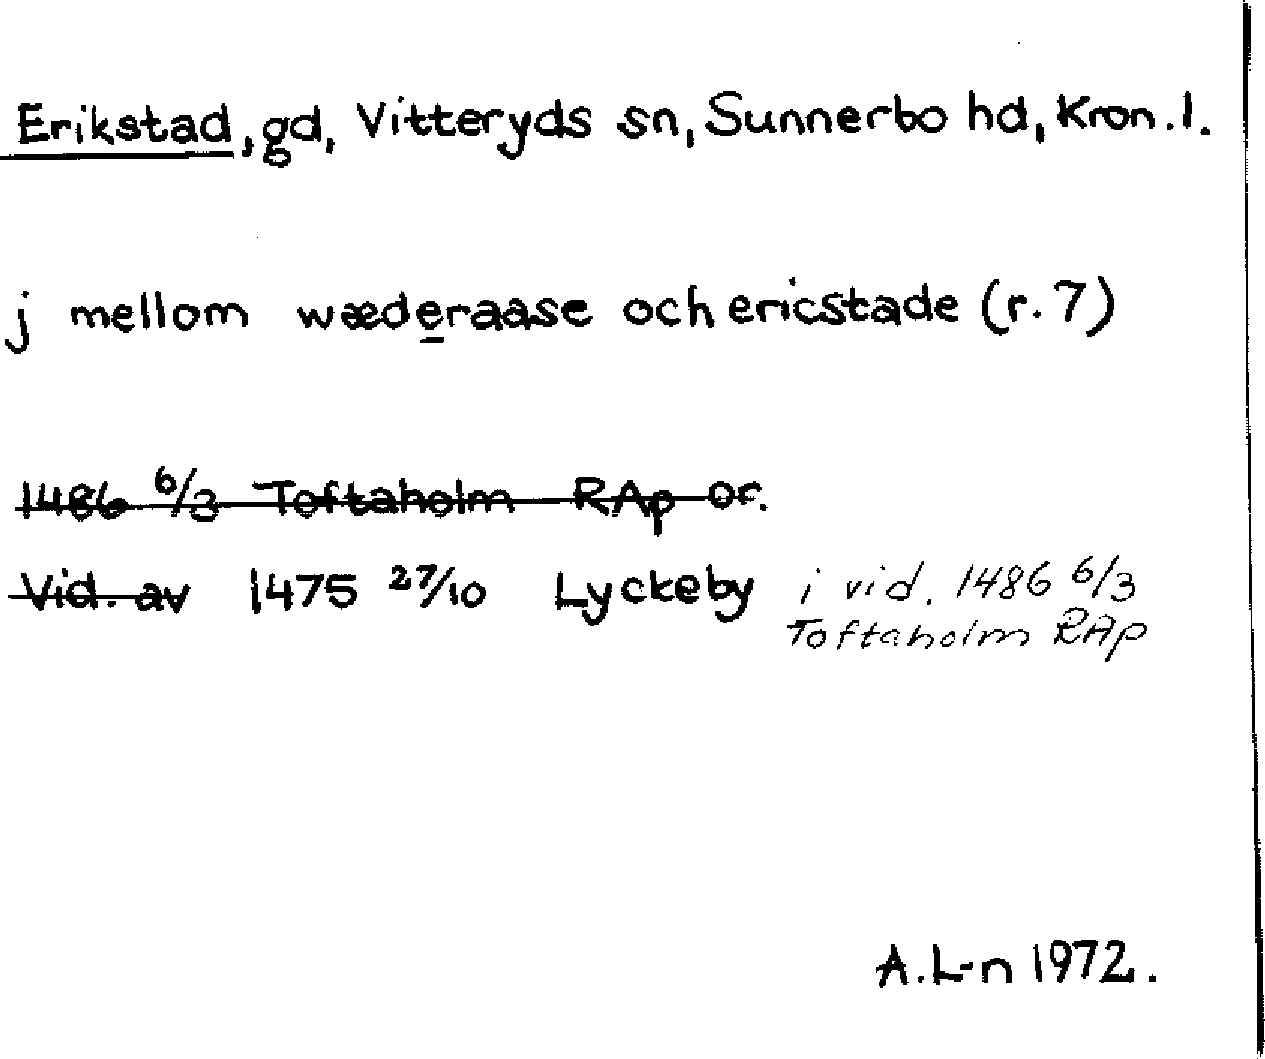 Erikstad, gd, Vitteryds sn, Sunnerbo hd, Kron.l.
j mellom wæderaase och ericstade (r. 7)
1486 6/3 Toftaholm RAp or.
Vid. av 1475 27/10 Lyckeby i vid. 1486 6/3
Toftaholm RAp
A.L-n 1972.